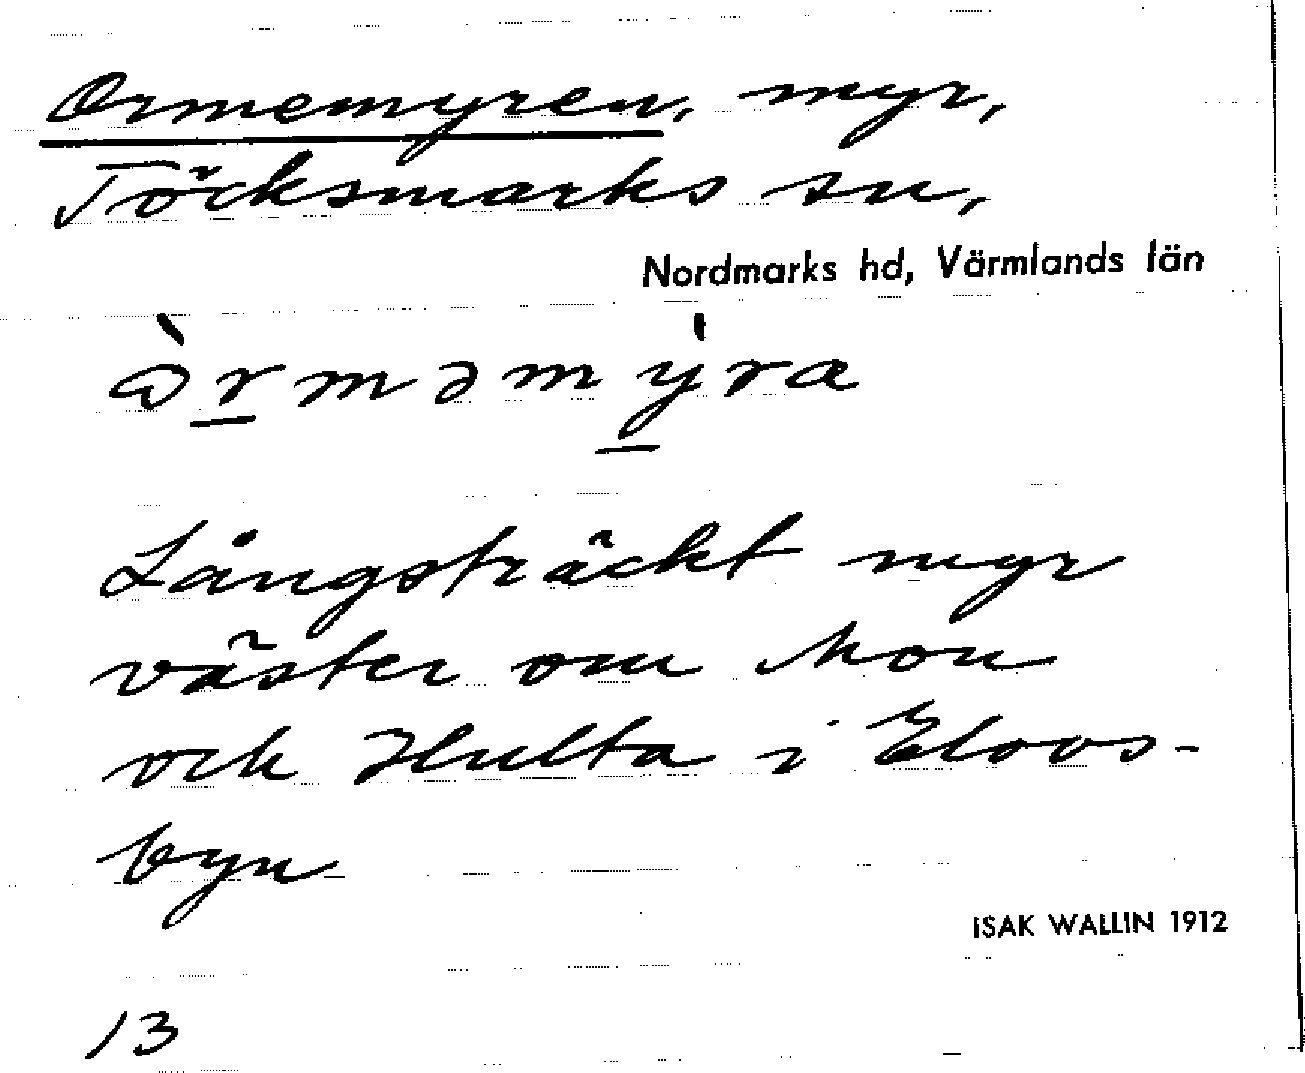 Ormemyren, myr,
Töcksmarks sn,
Nordmarks hd, Värmlands län
ꞷ̀rməmýra
Långsträckt myr
väster om Mon
och Hulta i Eloos-
byn
ISAK WALLIN 1912
13